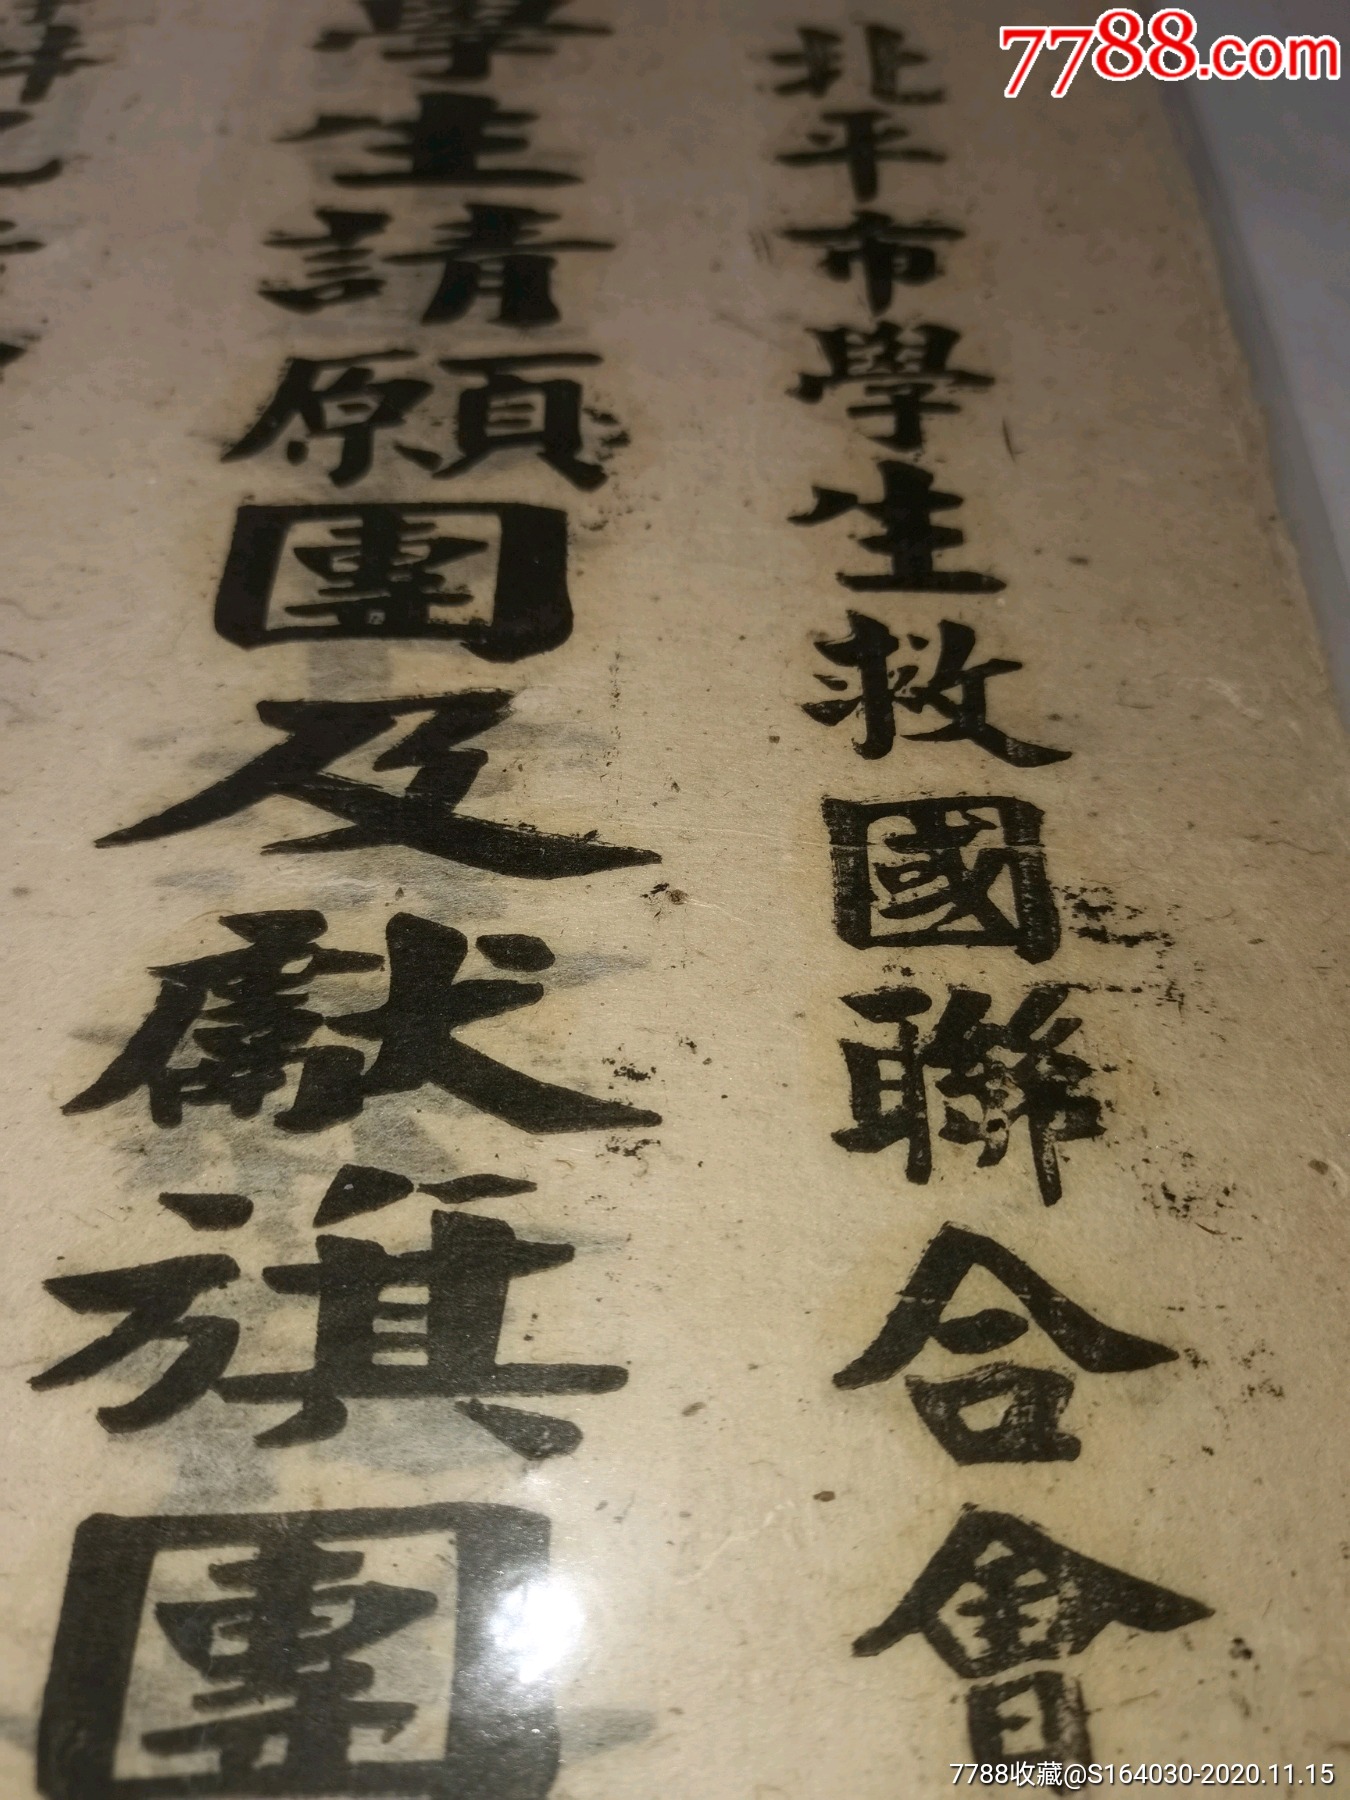 7788.com
北平市學生救國聯合會
學生請願團及獻旗團
7788收藏@S164030-2020.11.15